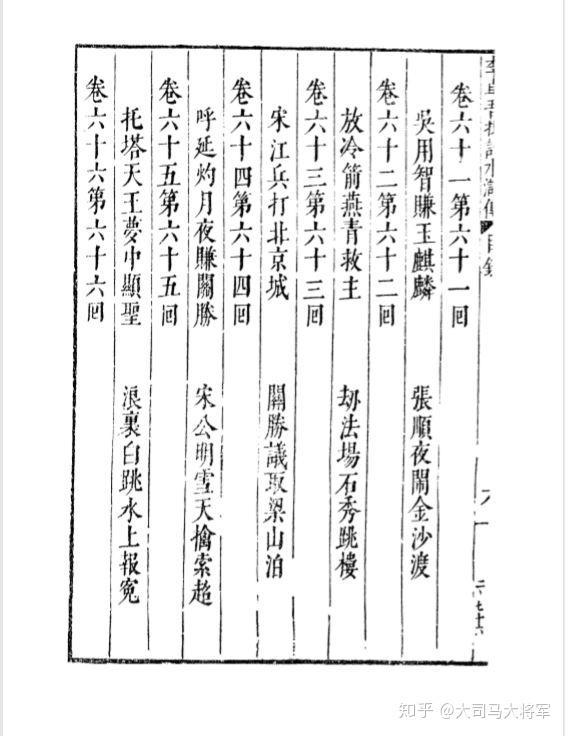 卷六十一第六十一回
吳用智賺玉麒麟 張順夜鬧金沙渡
卷六十二第六十二回
放冷箭燕青救主 刼法場石秀跳樓
卷六十三第六十三回
宋江兵打北京城 關勝議取梁山泊
卷六十四第六十四回
呼延灼月夜賺關勝 宋公明雪天擒索超
卷六十五第六十五回
托塔天王夢中顯聖 浪裏白跳水上報寃
卷六十六第六十六回
知乎 @大司马大将军